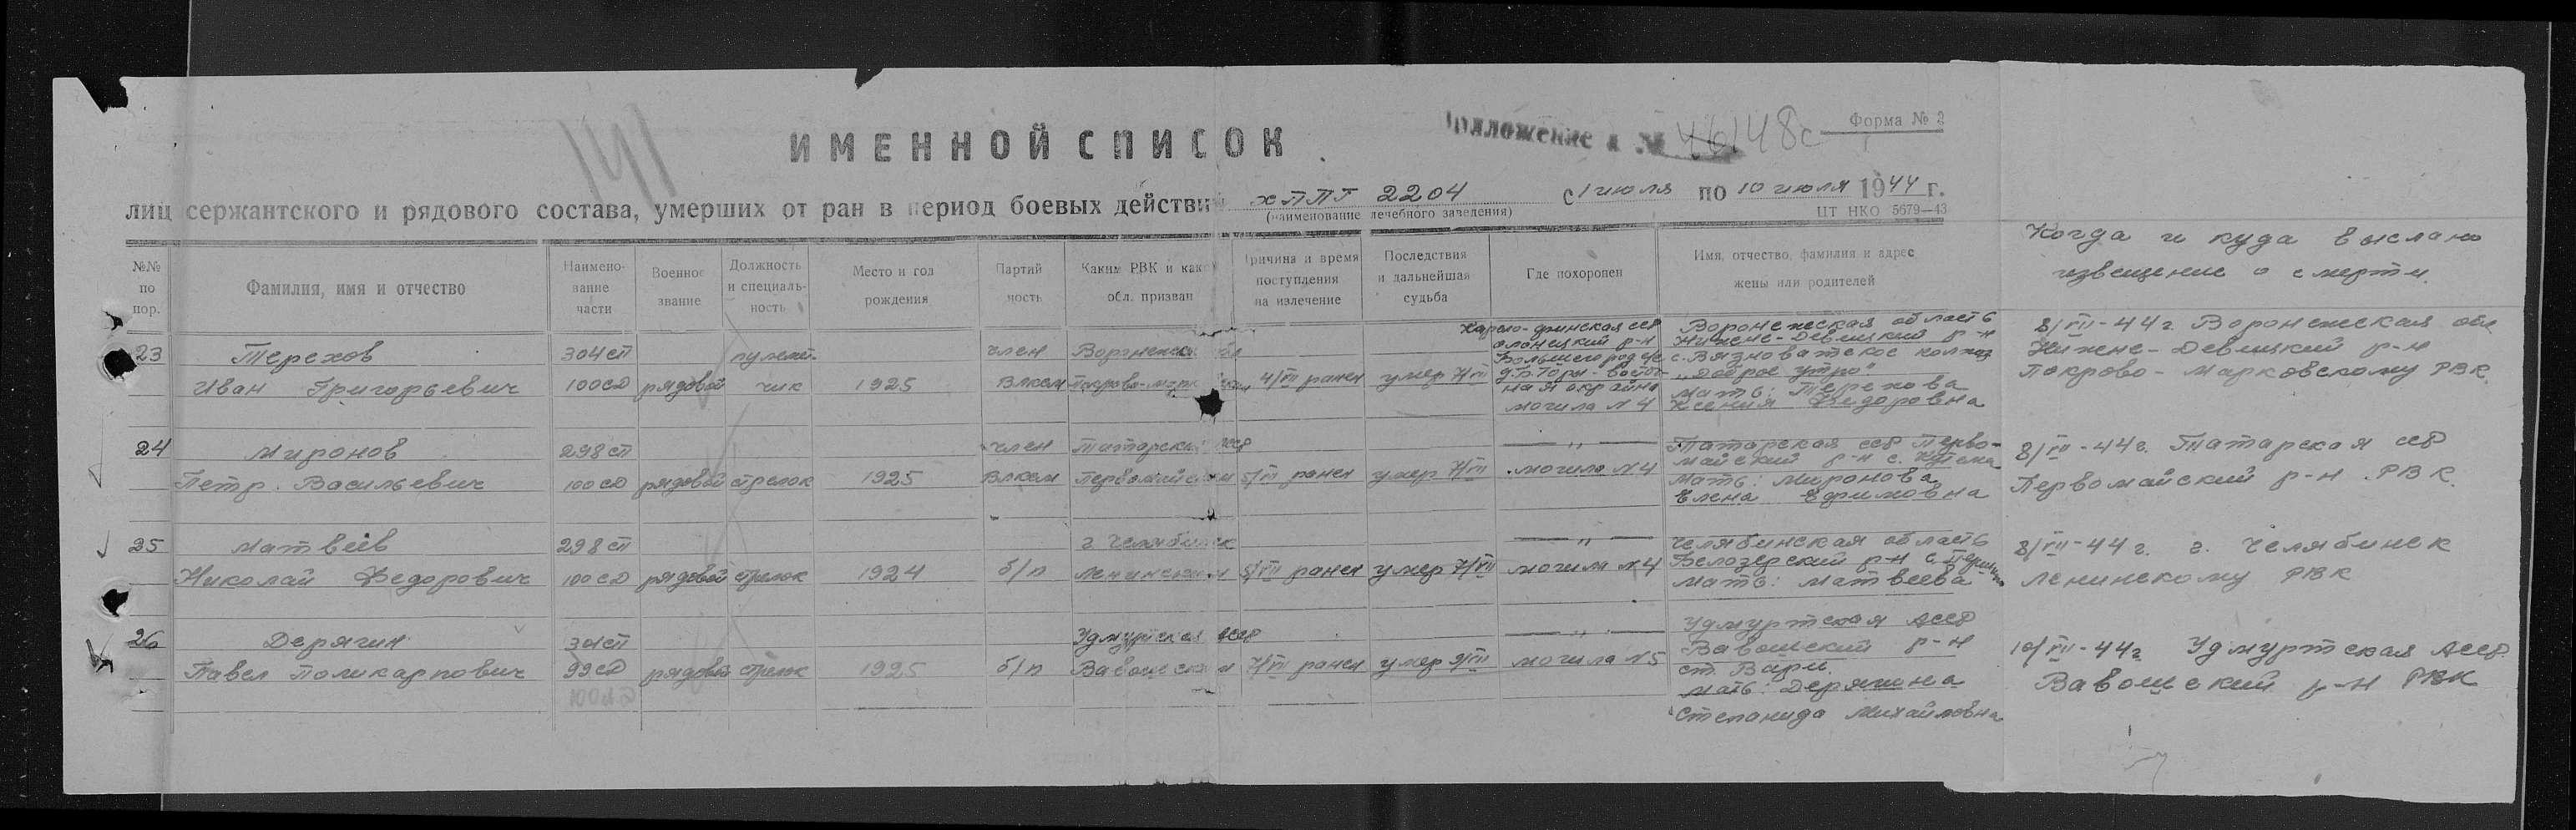 141
ИМЕННОЙ СПИСОК
Приложение к № 46148с
Форма № 2
лиц сержантского и рядового состава, умерших от ран в период боевых действий хППГ 2204 с 1 июля по 10 июля 1944 г.
(наименование лечебного заведения)
ЦТ НКО 5679—43
№№ по пор.
Фамилия, имя и отчество
Наимено-вание части
Военное звание
Должность и специаль-ность
Место и год рождения
Партий ность
Каким РВК и какой обл. призван
Причина и время поступления на излечение
Последствия и дальнейшая судьба
Где похоронен
Имя, отчество, фамилия и адрес жены или родителей
Когда и куда выслано извещение о смерти
23
Терехов
Иван Григорьевич
304 сп
100 сд
рядовой
пулемет.
чик
1925
член
Влксм
Воронежская обл
4/VII ранен
умер 7/VII
Карело-финская сср
олонецкий р-н
могила N 4
Воронежская область
Нижне-Девицкий р-н
с. Вязноватское колхоз
"Доброе утро"
мать: Терехова
Ксения Федоровна
8/VII-44 г. Воронежская обл
Нижне-Девицкий р-н
Покрово-Марковскому РВК
24
Миронов
Петр Васильевич
298 сп
100 сд
рядовой
стрелок
1925
член
Влксм
Татарская сср
Первомайским
5/VII ранен
умер 7/VII
— " —
могила N 4
Татарская сср Перво-
майский р-н с.
мать: Миронова
Елена Ефимовна
8/VII-44 г. Татарская сср
Первомайский р-н РВК.
25
Матвеев
Николай Федорович
298 сп
100 сд
рядовой
стрелок
1924
б/п
г. Челябинск
Ленинским
5/VII ранен
умер 7/VII
— " —
могила N 4
Челябинская область
Белозерский р-н
мать: Матвеева
8/VII-44 г. г. Челябинск
Ленинскому РВК
26
Дерягин
Павел Поликарпович
304 сп
99 сд
100 сд
рядовой
стрелок
1925
б/п
Удмуртская асср
Вавожским
7/VII ранен
умер 9/VII
— " —
могила N 5
Удмуртская Асср
Вавожский р-н
мать: Дерягина
Степанида Михайловна
10/VII-44 г. Удмуртская Асср
Вавожский р-н РВК